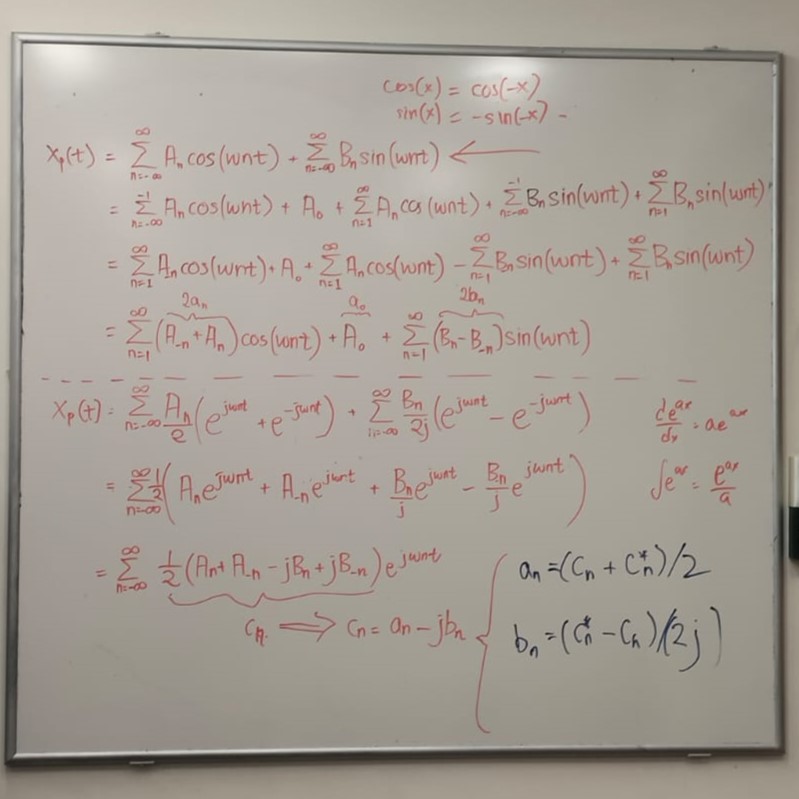 cos(x) = cos(-x)
sin(x) = -sin(-x) -
Xp(t) = ∑_{n=-∞}^{∞} Aₙ cos(wnt) + ∑_{n=-∞}^{∞} Bₙ sin(wnt) ←
= ∑_{n=-∞}^{-1} Aₙ cos(wnt) + A₀ + ∑_{n=1}^{∞} Aₙ cos(wnt) + ∑_{n=-∞}^{-1} Bₙ sin(wnt) + ∑_{n=1}^{∞} Bₙ sin(wnt)
= ∑_{n=1}^{∞} A₋ₙ cos(wnt) + A₀ + ∑_{n=1}^{∞} Aₙ cos(wnt) - ∑_{n=1}^{∞} B₋ₙ sin(wnt) + ∑_{n=1}^{∞} Bₙ sin(wnt)
2aₙ a₀ 2bₙ
= ∑_{n=1}^{∞} (A₋ₙ + Aₙ) cos(wnt) + A₀ + ∑_{n=1}^{∞} (Bₙ - B₋ₙ) sin(wnt)
Xp(t) = ∑_{n=-∞}^{∞} Aₙ/2 (e^{jwnt} + e^{-jwnt}) + ∑_{n=-∞}^{∞} Bₙ/2j (e^{jwnt} - e^{-jwnt})
de^{ax}/dx = ae^{ax}
= ∑_{n=-∞}^{∞} 1/2 (Aₙ e^{jwnt} + A₋ₙ e^{jwnt} + Bₙ/j e^{jwnt} - B₋ₙ/j e^{jwnt})
∫e^{ax} = e^{ax}/a
= ∑_{n=-∞}^{∞} 1/2 (Aₙ + A₋ₙ - jBₙ + jB₋ₙ) e^{jwnt}
cₙ ⟹ cₙ = aₙ - jbₙ
aₙ = (Cₙ + Cₙ*)/2
bₙ = (Cₙ* - Cₙ)/(2j)